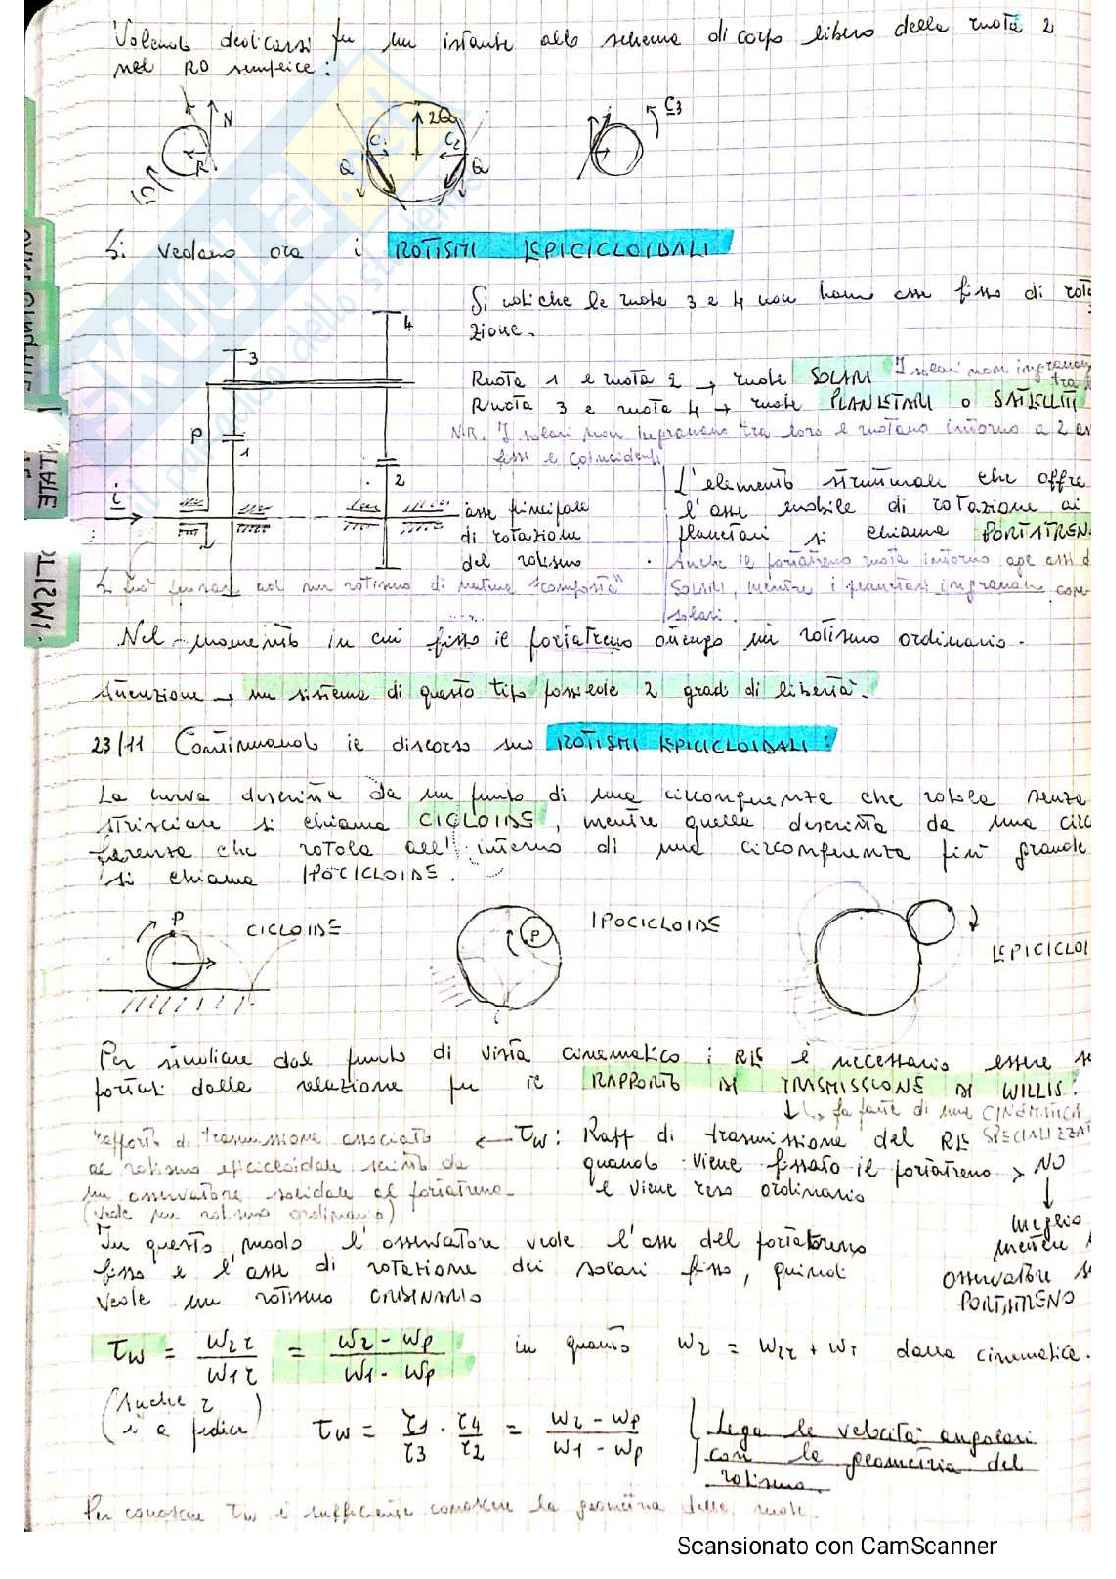 Volendo dedicarsi per un istante allo schema di corpo libero della ruota 2
nel RO semplice:
N
R
2Q
C1
C2
Q
Q
C3
Si vedano ora i ROTISMI EPICICLOIDALI
Si noti che le ruote 3 e 4 non hanno asse fisso di rota
zione.
4
3
P
1
2
i
Ruota 1 e ruota 2 → ruote SOLARI I solari non ingranano tra
Ruota 3 e ruota 4 → ruote PLANETARI o SATELLITI
N.B. I solari non ingranano tra loro e ruotano intorno a 2
fissi e coincidenti
asse principale
di rotazione
del rotismo
L'elemento strutturale che offre
l'asse mobile di rotazione ai
planetari si chiama PORTATREN
Anche il portatreno ruota intorno agli assi d
SOLARI, mentre i planetari ingranano con
solari.
Si può pensare ad un rotismo di natura "composta"
Nel momento in cui fisso il portatreno ottengo un rotismo ordinario.
Attenzione → un sistema di questo tipo possiede 2 gradi di libertà.
23/11 Continuando il discorso sui ROTISMI EPICICLOIDALI:
La curva descritta da un punto di una circonferenza che rotola senza
strisciare si chiama CICLOIDE, mentre quella descritta da una circ
ferenza che rotola all'interno di una circonferenza più grande
si chiama IPOCICLOIDE.
P
CICLOIDE
P
IPOCICLOIDE
EPICICLOI
Per studiare dal punto di vista cinematico i RE è necessario essere
portati dalla relazione per il RAPPORTO DI TRASMISSIONE DI WILLIS:
↓ ↳ fa parte di una CINEMATICA
SPECIALIZZAT
rapporto di trasmissione associato
al rotismo epicicloidale scritto da
un osservatore solidale al portatreno
(vede un rotismo ordinario)
← τw: Rapp di trasmissione del RE
quando viene fissato il portatreno > NO
e viene reso ordinario
meglio
mettere
osservatore
PORTATRENO
In questo modo l'osservatore vede l'asse del portatreno
fisso e l'asse di rotazione dei solari fisso, quindi
vede un rotismo ORDINARIO
τw = ω2r / ω1r = ω2 - ωp / ω1 - ωp in quanto ω2 = ω2r + ωt dalla cinematica.
(Anche r
è a pedice)
τw = r1/r3 · r4/r2 = ω2 - ωp / ω1 - ωp
Lega le velocità angolari
con la geometria del
rotismo.
Per conoscere τw è sufficiente conoscere la geometria delle ruote.
Scansionato con CamScanner